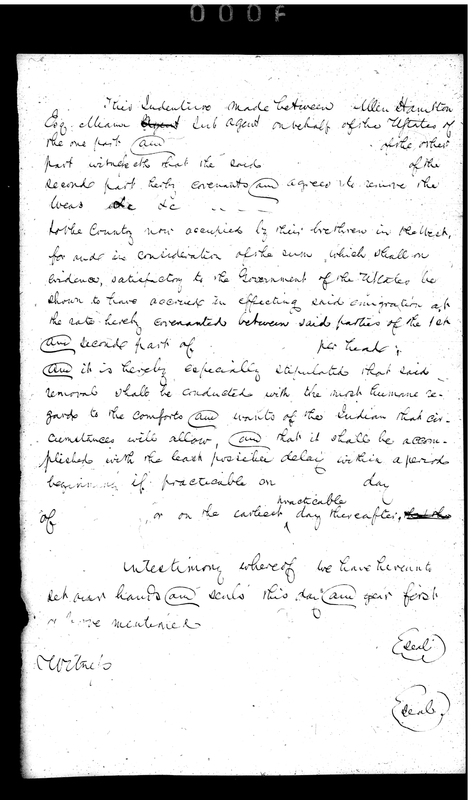 000F
This Indenture made between Allen Hamilton
Esq. Miami Agent Sub agent on behalf of the UStates of
the one part and of the other
part witnesseth that the said of the
second part herby covenants and agrees to remove the
&c &c
to the Country now occupied by their brethren in the West,
for and in consideration of the sum, which shall on
evidence, satisfactory to the Government of the UStates be
shown to have accrued in effecting said emigration at
the rate hereby covenanted between said parties of the 1st
and second part of per head;
and it is hereby especially stipulated that said
removal shall be conducted with the most humane re-
gards to the comforts and wants of the Indian that cir-
cumstances will allow, and that it shall be accom-
plished with the least possible delay within a period
beginning if practicable on day
of or on the earliest practicable day thereafter,
In testimony whereof we have hereunto
set our hands and seals this day and year first
above mentioned
Witness
Seal
Seal